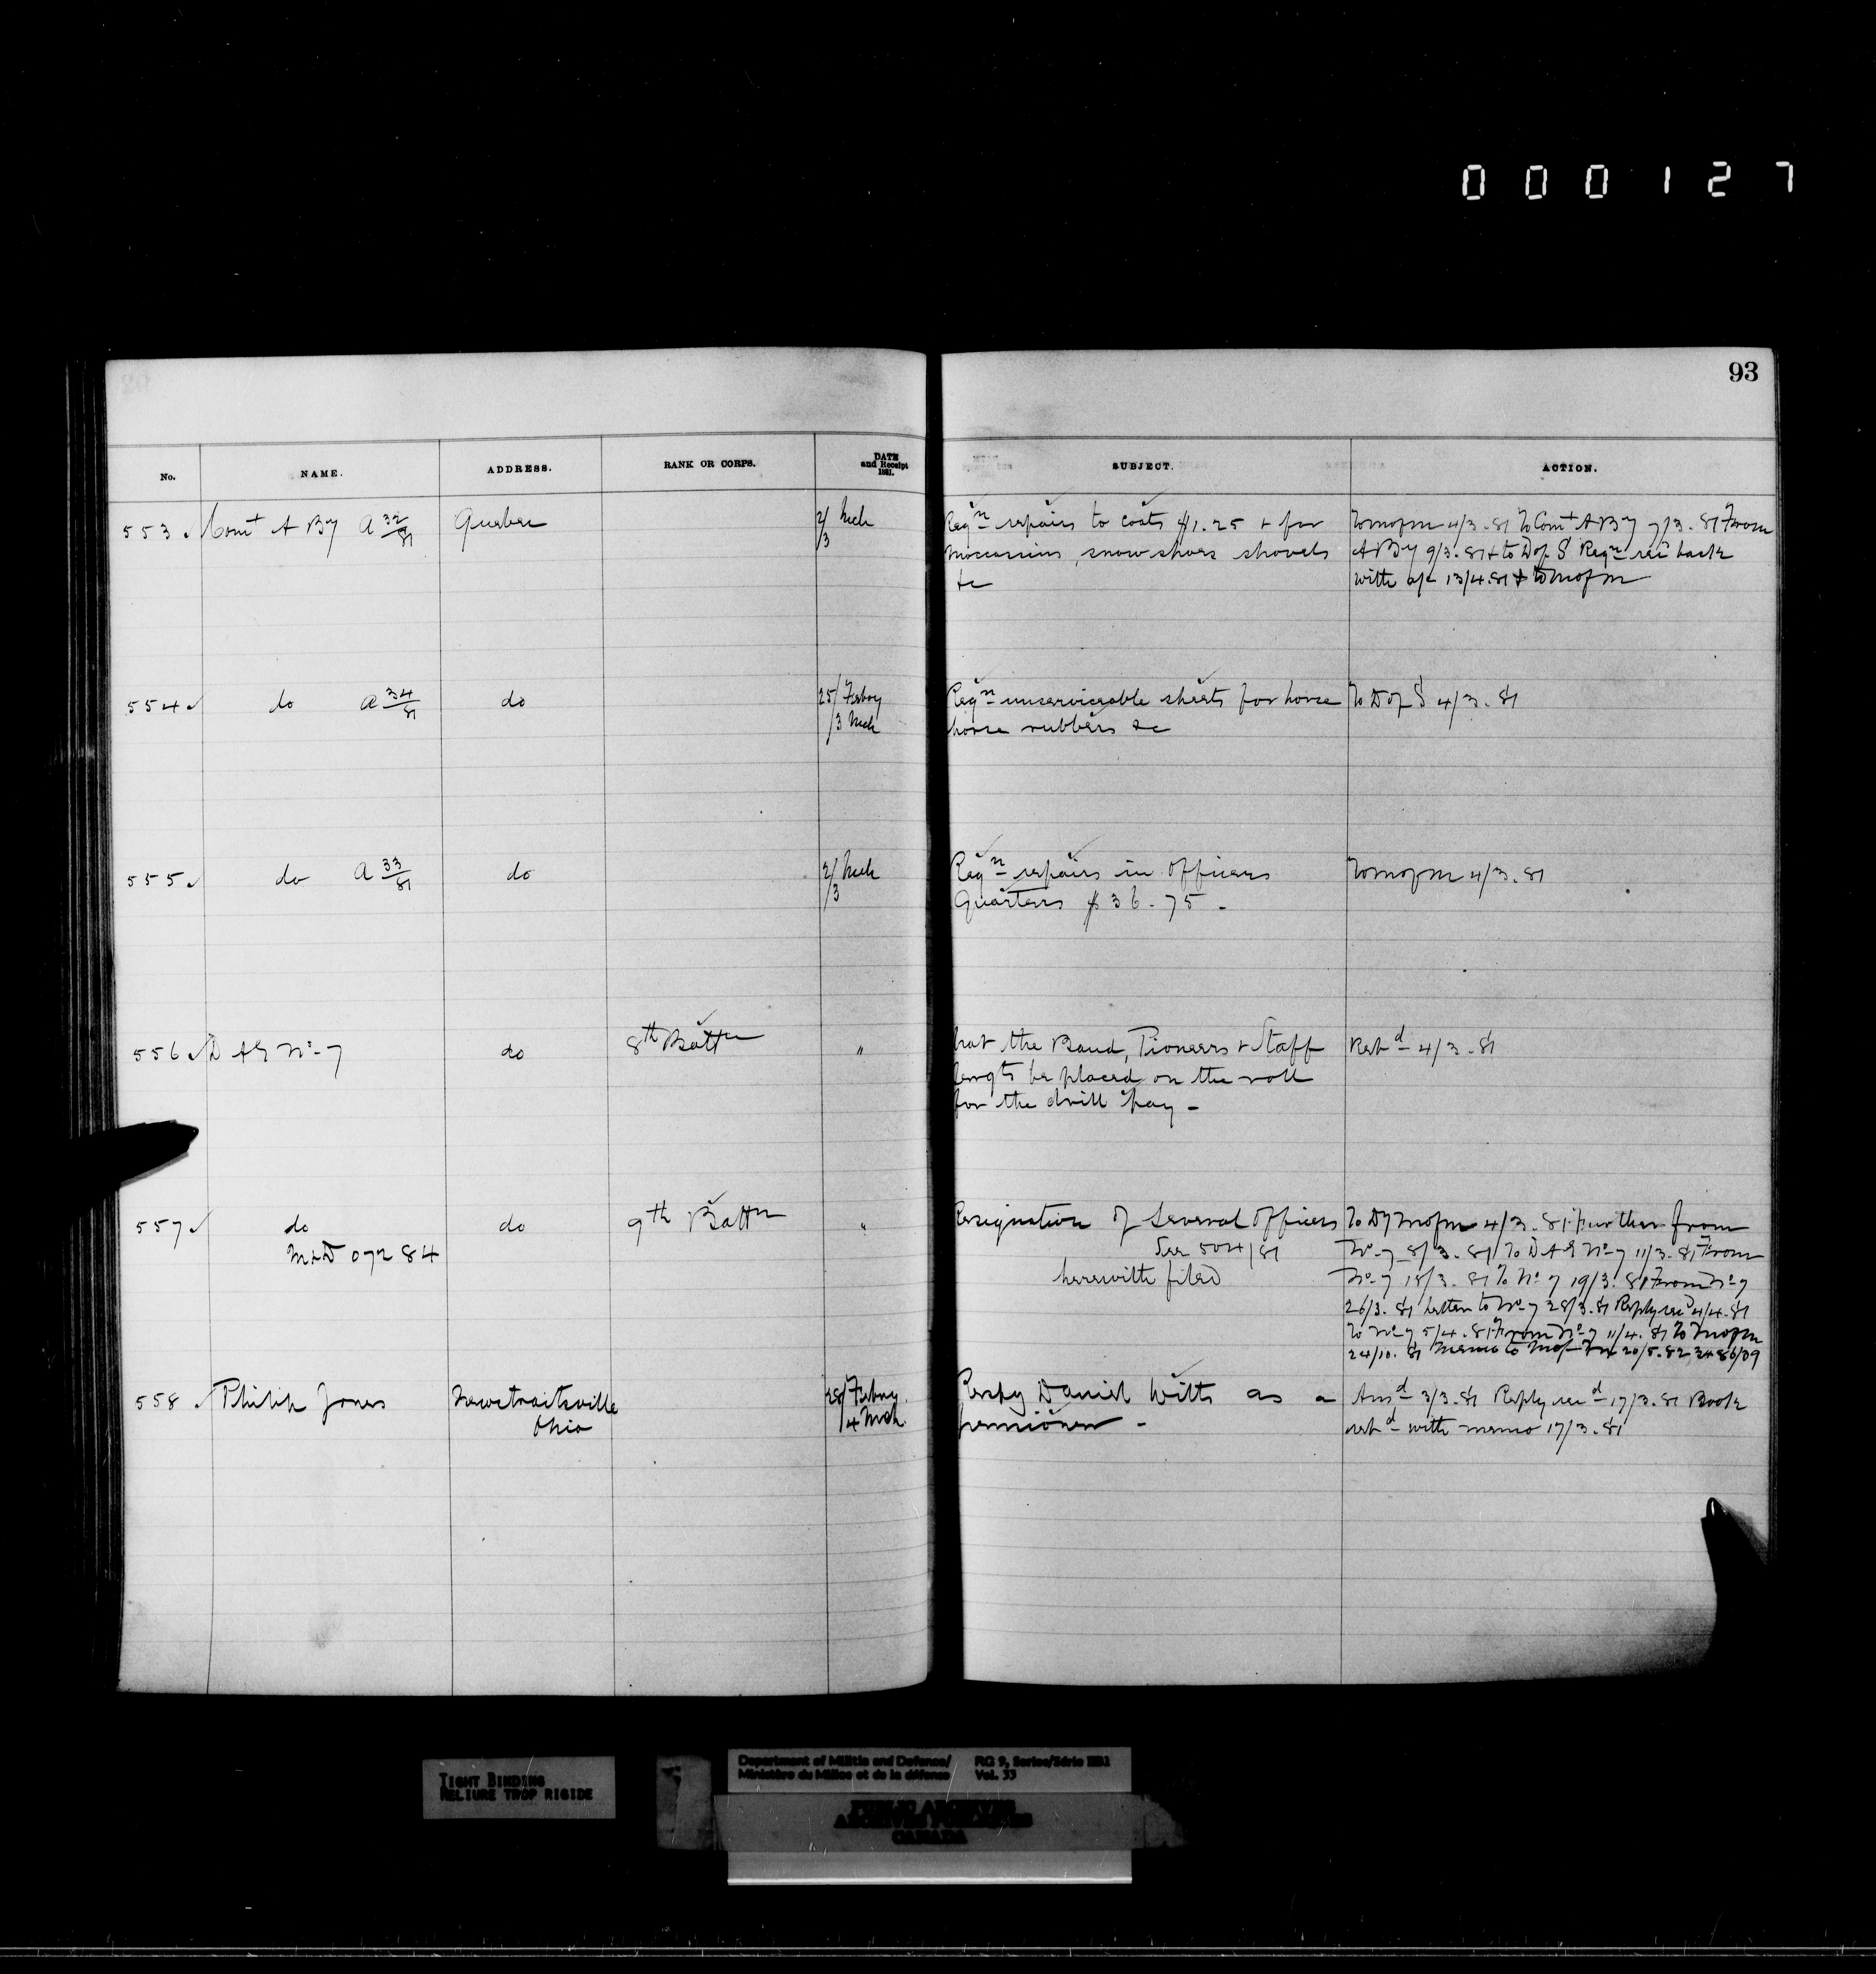 000127
93
No. NAME. ADDRESS. RANK OR CORPS. DATE and Receipt 1881. SUBJECT. ACTION.
553 Comt A By A 32/81 Quebec 2/3 Mch Reqn repairs to coats $1.25 + for To M of M 4/3.81 To Comt A By 7/3.81 From
moccasins, snow shoes shovels A By 9/3.81 + to D of S Reqn recd back
&c with 13/4.81 + to M of M
554 do A 34/81 do 25/ Febry Reqn unserviceable sheets for horse To D of S 4/3.81
/3 Mch horse rubbers &c
555 do A 33/81 do 2/3 Mch Reqn repairs in Officers To M of M 4/3.81
Quarters $36.75 -
556 D A G No. 7 do 8th Battn " that the Band, Pioneers + Staff Retd 4/3.81
Sergts be placed on the roll
for the drill pay -
557 do do 9th Battn " Resignation of Several Officers To Dy M of M 4/3.81 Further from
M & D 07284 See 504/81 No. 7 8/3.81 To D A G No. 7 11/3.81 From
herewith filed No. 7 18/3.81 To No. 7 19/3.81 From No. 7
26/3.81 Letter to No. 7 28/3.81 Reply recd 4/4.81
To No. 7 5/4.81 From No. 7 11/4.81 To M of M
24/10.81 Memo to M of 20/5.82 3486/09
558 Philip Jones Newstraitsville 28/ Febry Respy Daniel Witts as a Ansd 3/3.81 Reply recd 17/3.81 Book
Ohio /4 Mch pensioner - retd with memo 17/3.81
TIGHT BINDING
RELIURE TROP RIGIDE
Department of Militia and Defence/ RG 9, Series/Série IIB1
Ministère du Milice et de la défense Vol. 33
PUBLIC ARCHIVES
ARCHIVES PUBLIQUES
CANADA